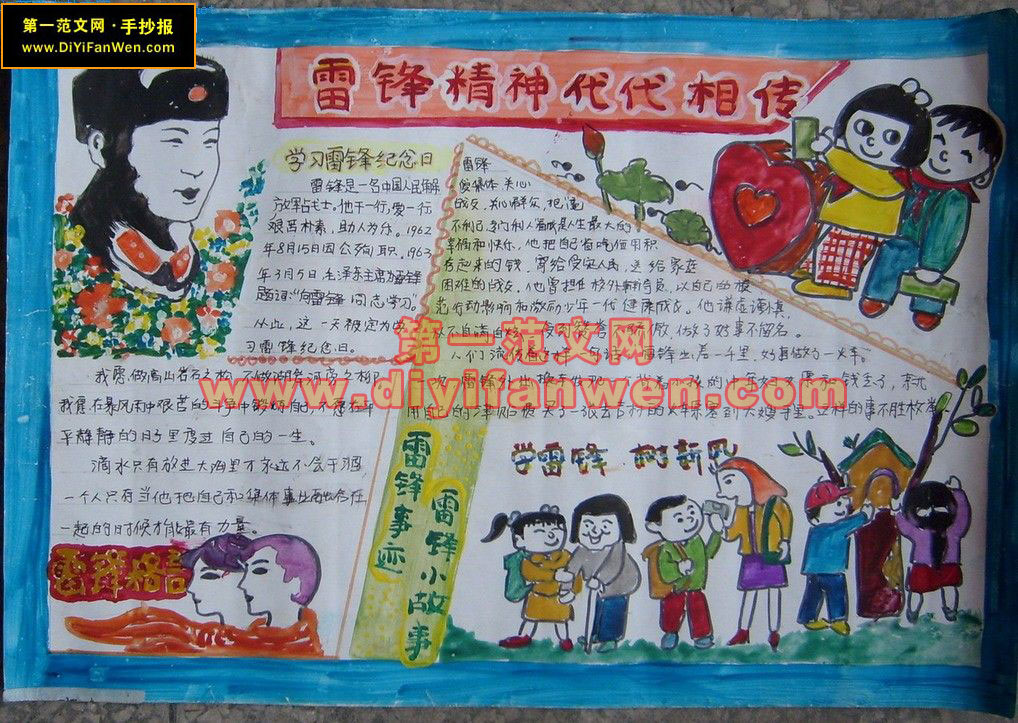 第一范文网·手抄报
www.DiYiFanWen.com
雷锋精神代代相传
学习雷锋纪念日
雷锋是一名中国人民解
放军战士,他干一行,爱一行
艰苦朴素,助人为乐。1962
年8月15日因公殉职。1963
年3月5日毛泽东主席为雷锋
题词:"向雷锋同志学习"。
从此,这一天被定为学
习雷锋纪念日。
我愿做高山岩石之松,不做湖岸河旁之柳
我愿在暴风雨中艰苦的斗争中锻炼自己,不愿在平
平静静的日子里度过自己的一生。
滴水只有放进大海里才永远不会干涸
一个人只有当他把自己和集体事业融合在
一起的时候才能最有力量。
雷锋格言
雷锋
集体 关心
战友,
幸福和快乐,他把自己省吃俭用积
存起来的钱,寄给受灾人民,送给家庭
困难的战友,他曾担任校外辅导员,以自己的模
范行动影响和激励少年一代健康成长。他谦虚谨慎
从不自满自 做了好事不留名。
人们流传着这样一句话:"雷锋出差一千里,好事做了一火车。"
用自己的津贴 买了一张去吉林的火车票塞到大嫂手里。这样的事不胜枚举。
第一范文网
www.diyifanwen.com
雷锋事迹
雷锋小故事
学雷锋 树新风